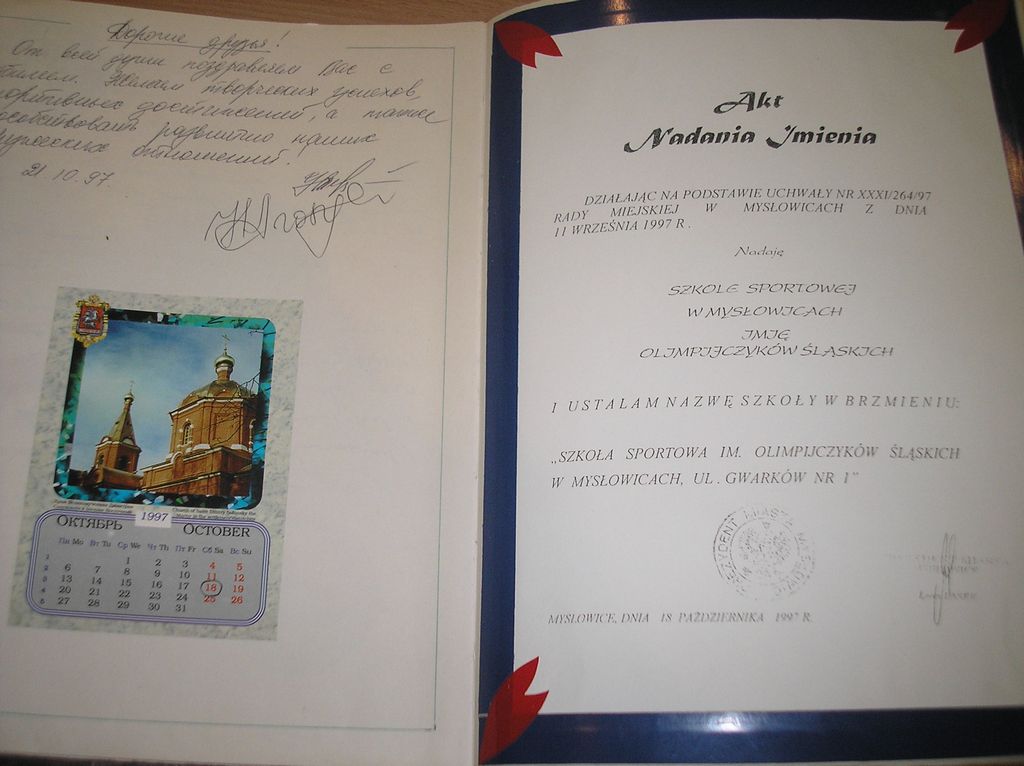 Дорогие друзья!
От всей души поздравляем Вас с
Желаем творческих успехов,
достижений, а также
развитию наших
отношений.
21.10.97.
ОКТЯБРЬ 1997 OCTOBER
Пн Mo Вт Tu Ср We Чт Th Пт Fr Сб Sa Вс Su
1 1 2 3 4 5
2 6 7 8 9 10 11 12
3 13 14 15 16 17 18 19
4 20 21 22 23 24 25 26
5 27 28 29 30 31
Akt
Nadania Imienia
DZIAŁAJĄC NA PODSTAWIE UCHWAŁY NR XXXI/264/97
RADY MIEJSKIEJ W MYSŁOWICACH Z DNIA
11 WRZEŚNIA 1997 R.
Nadaję
SZKOLE SPORTOWEJ
W MYSŁOWICACH
IMIĘ
OLIMPIJCZYKÓW ŚLĄSKICH
I USTALAM NAZWĘ SZKOŁY W BRZMIENIU:
„SZKOŁA SPORTOWA IM. OLIMPIJCZYKÓW ŚLĄSKICH
W MYSŁOWICACH, UL. GWARKÓW NR 1”
PREZYDENT MIASTA MYSŁOWICE
MYSŁOWICE, DNIA 18 PAŹDZIERNIKA 1997 R.